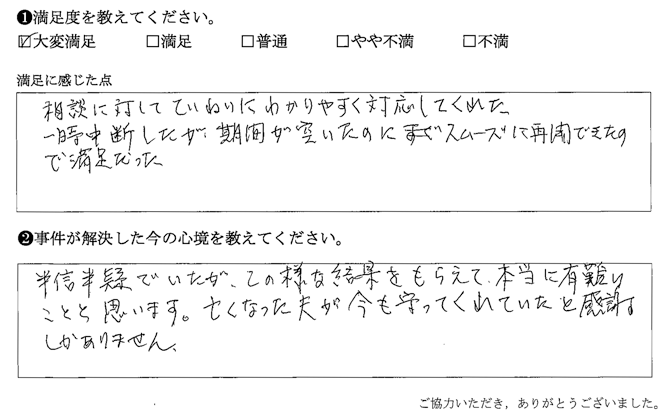 ❶満足度を教えてください。
☑大変満足 □満足 □普通 □やや不満 □不満
満足に感じた点
相談に対してていねいにわかりやすく対応してくれた
一時中断したが、期間が空いたのにすぐスムーズに再開できたの
で満足だった
❷事件が解決した今の心境を教えてください。
半信半疑でいたが、この様な結果をもらえて、本当に有難い
ことと思います。亡くなった夫が今も守ってくれていたと感謝
しかありません。
ご協力いただき，ありがとうございました。